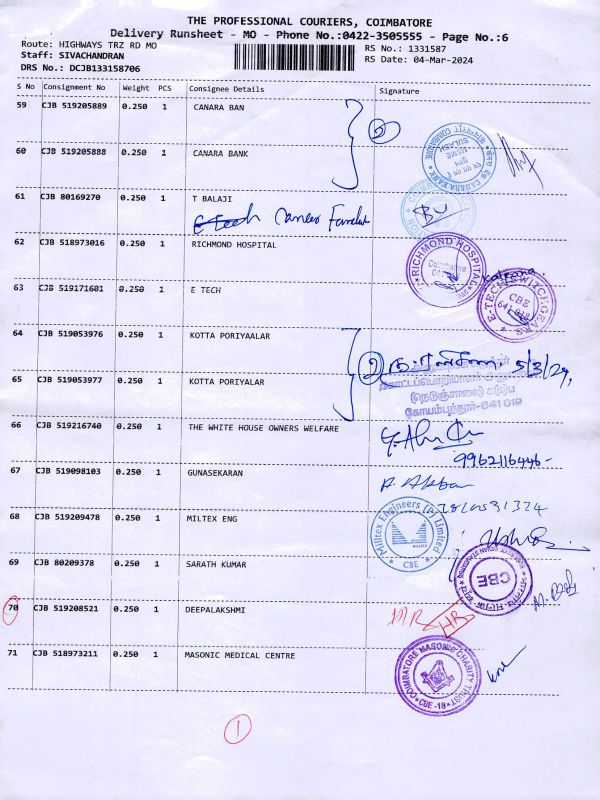 THE PROFESSIONAL COURIERS, COIMBATORE
Delivery Runsheet - MO - Phone No.:0422-3505555 - Page No.:6
Route: HIGHWAYS TRZ RD MO
RS No.: 1331587
Staff: SIVACHANDRAN
RS Date: 04-Mar-2024
DRS No.: DCJB133158706
S No Consignment No Weight PCS Consignee Details Signature
59 CJB 519205889 0.250 1 CANARA BAN
2
60 CJB 519205888 0.250 1 CANARA BANK
61 CJB 80169270 0.250 1 T BALAJI
E Tech
62 CJB 518973016 0.250 1 RICHMOND HOSPITAL
RICHMOND HOSPITAL
Coimbatore
63 CJB 519171601 0.250 1 E TECH
E-TECH SWITCHGEARS
CBE
641 018
64 CJB 519053976 0.250 1 KOTTA PORIYAALAR
2
5/3/24,
65 CJB 519053977 0.250 1 KOTTA PORIYALAR
(நெடுஞ்சாலை)
கோயம்புத்தூர்-641 018
66 CJB 519216740 0.250 1 THE WHITE HOUSE OWNERS WELFARE
9962116446-
67 CJB 519098103 0.250 1 GUNASEKARAN
68 CJB 519209478 0.250 1 MILTEX ENG
Miltex Engineers (P) Limited
MILTEX
CBE
69 CJB 80209378 0.250 1 SARATH KUMAR
CBE
70 CJB 519208521 0.250 1 DEEPALAKSHMI
HR
71 CJB 518973211 0.250 1 MASONIC MEDICAL CENTRE
COIMBATORE MASONIC CHARITY TRUST
CBE -18
1